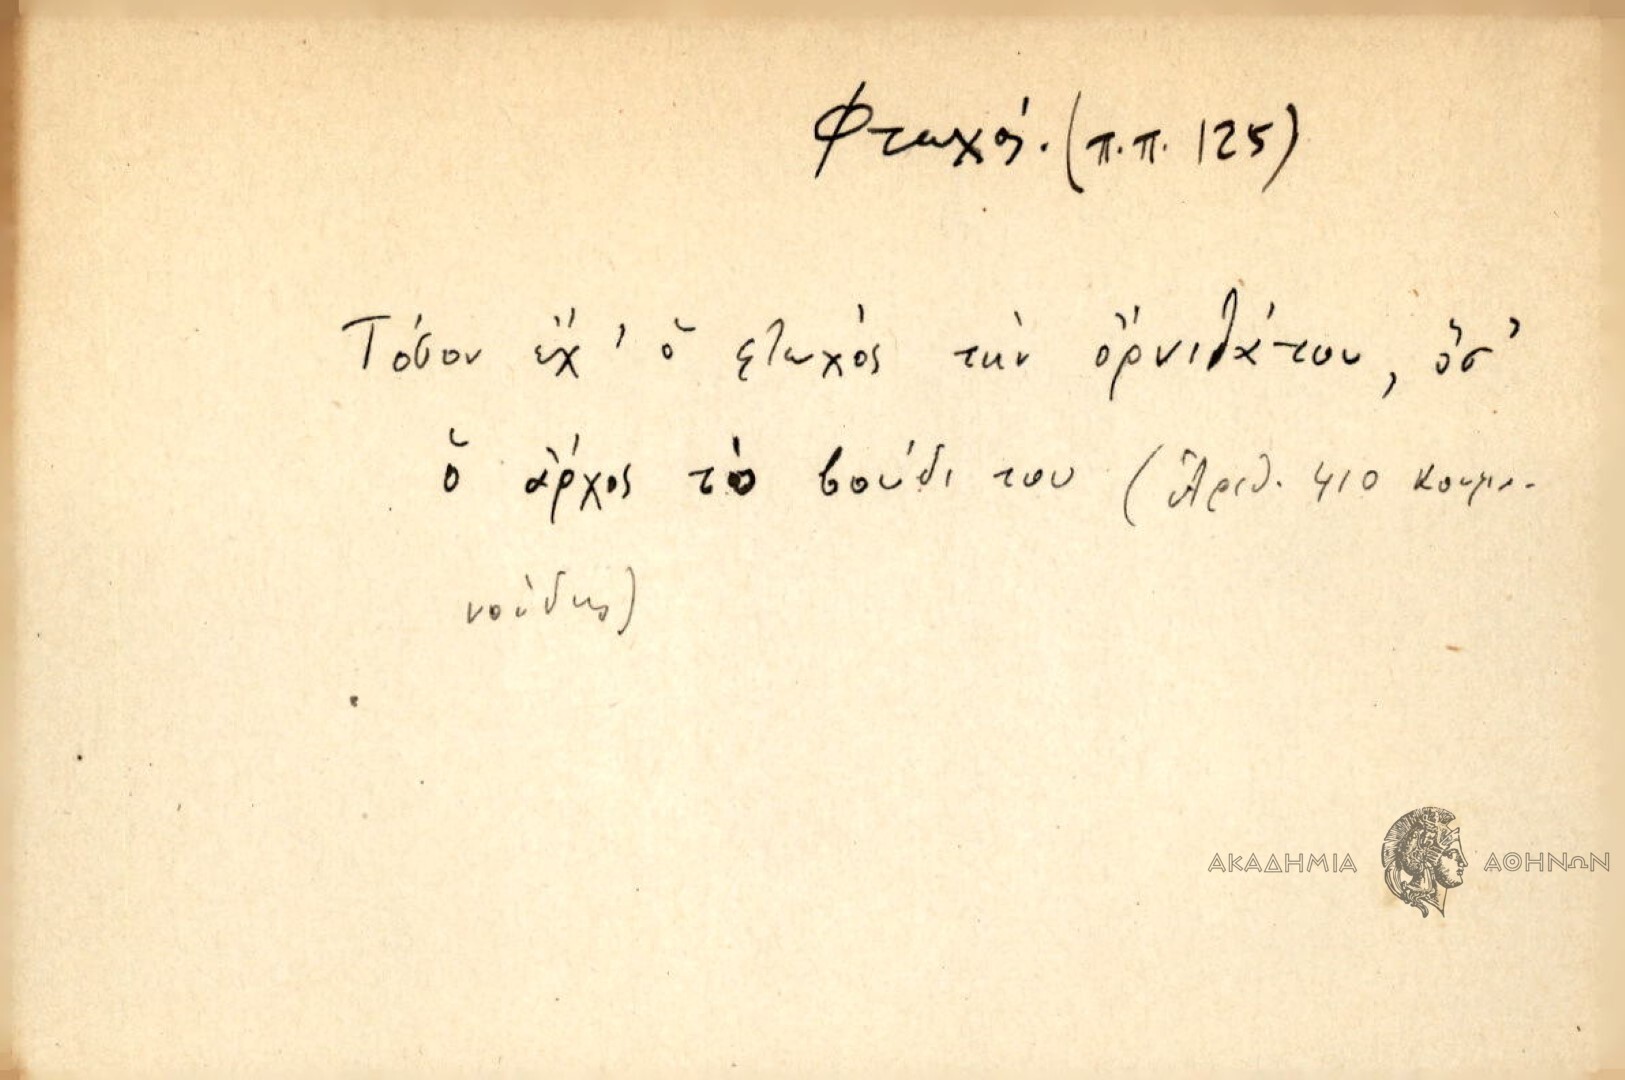 Φτωχός. (π.π. 125)
Τόσον ἔχ' ὁ φτωχὸς τὴν ὄρνιθά του, ὅσ'
ὁ ἄρχος τὸ βούδι του (Ἀριθ. 410 Κουμα-
νούδης)
ΑΚΑΔΗΜΙΑ ΑΘΗΝΩΝ